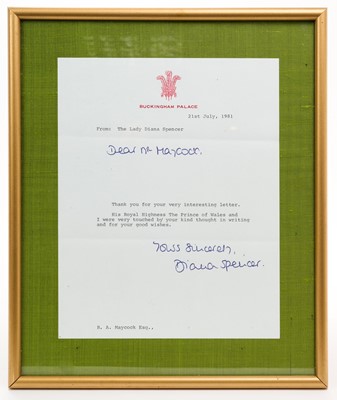 BUCKINGHAM PALACE
21st July, 1981
From: The Lady Diana Spencer
Dear Mr Maycock.
Thank you for your very interesting letter.
His Royal Highness The Prince of Wales and
I were very touched by your kind thought in writing
and for your good wishes.
Yours sincerely,
Diana Spencer.
R. A. Maycock Esq.,